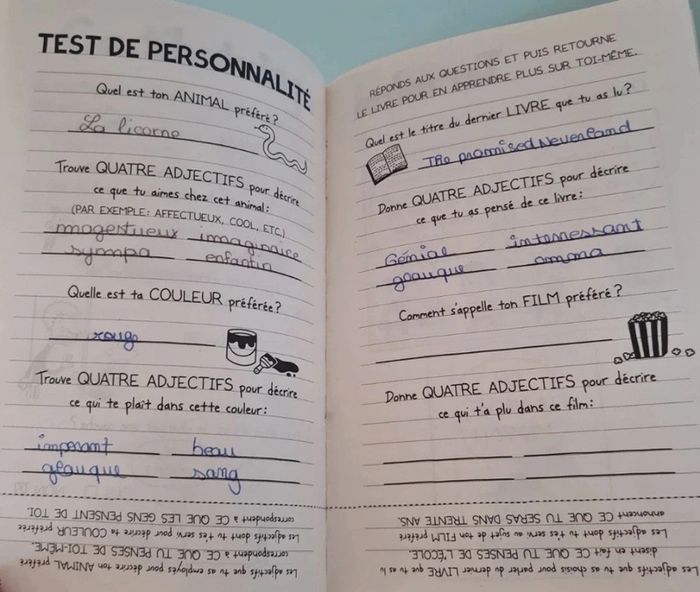 TEST DE PERSONNALITÉ
Quel est ton ANIMAL préféré ?
La licorne
Trouve QUATRE ADJECTIFS pour décrire
ce que tu aimes chez cet animal :
(PAR EXEMPLE : AFFECTUEUX, COOL, ETC.)
magestueux imaginaire
sympa enfantin
Quelle est ta COULEUR préférée ?
rouge
Trouve QUATRE ADJECTIFS pour décrire
ce qui te plaît dans cette couleur :
imposant beau
glauque sang
Les adjectifs que tu as employés pour décrire ton ANIMAL préféré
correspondent à CE QUE TU PENSES DE TOI-MÊME.
Les adjectifs dont tu t'es servi pour décrire ta COULEUR préférée
correspondent à CE QUE LES GENS PENSENT DE TOI.
RÉPONDS AUX QUESTIONS ET PUIS RETOURNE
LE LIVRE POUR EN APPRENDRE PLUS SUR TOI-MÊME.
Quel est le titre du dernier LIVRE que tu as lu ?
The promised Neverland
Donne QUATRE ADJECTIFS pour décrire
ce que tu as pensé de ce livre :
Génial
glauque
Comment s'appelle ton FILM préféré ?
Donne QUATRE ADJECTIFS pour décrire
ce qui t'a plu dans ce film :
Les adjectifs que tu as choisis pour parler du dernier LIVRE que tu as lu
disent en fait CE QUE TU PENSES DE L'ÉCOLE.
Les adjectifs dont tu t'es servi au sujet de ton FILM préféré
annoncent CE QUE TU SERAS DANS TRENTE ANS.